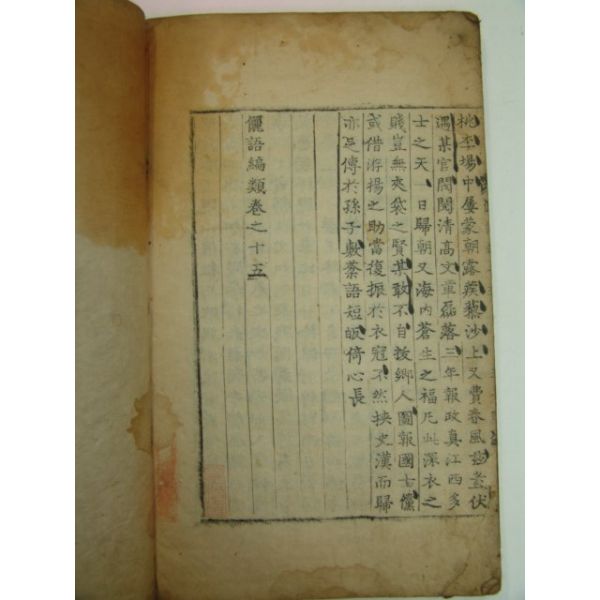 桃李場中屢蒙朝露蒺藜沙上又費春風玆蓋伏
遇某官閥閱淸高文章磊落三年報政眞江西多
士之天一日歸朝又海內蒼生之福凡此深衣之
賤豈無夾袋之賢某敢不自拔鄕人圖報國士儻
或借游揚之助當復振於衣冠不然挾史漢而歸
亦足傳於孫子敷棻語短皈倚心長
儷語編類卷之十五